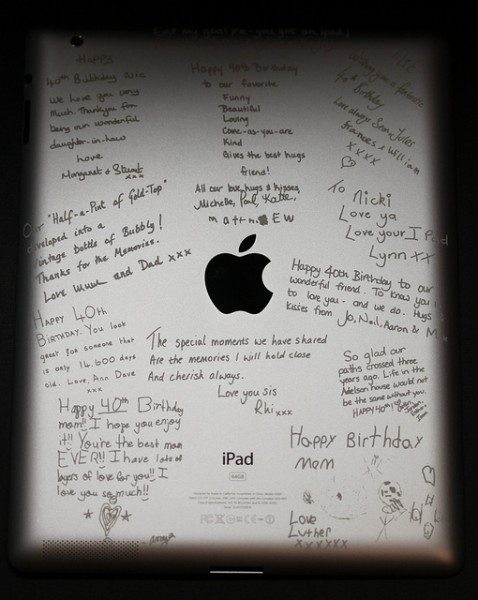 Happy
40th Birthday Nic
We love you very
much. Thankyou for
being our wonderful
daughter-in-law
Love
Margaret & Stewart
xxx
Happy 40th Birthday
to our favorite
Funny
Beautiful
Loving
Come-as-you-are
Kind
Gives the best hugs
friend!
All our love, hugs & kisses,
Michelle, Paul, Katie,
matthew
Wishing you a fantastic
Birthday
Love always Sean, Jules
Frances + William
xxxx
To Nicki
Love ya
Love your I Pad
Lynn xx
Our "Half-a-Pint of Gold-Top"
developed into a
vintage bottle of Bubbly!
Thanks for the Memories.
Love Mum and Dad xxx
Happy 40th Birthday to our
wonderful friend. To know you is
to love you - and we do. Hugs
kisses from Jo, Neil, Aaron &
Happy 40th
Birthday. You look
great for someone that
is only 14,600 days
old. Love, Ann Dave
xx
The special moments we have shared
Are the memories I will hold close
And cherish always.
Love you sis
Rhi xxx
So glad our
paths crossed three
years ago. Life in the
Adelson house would not
be the same without you.
Happy 40th!
Happy 40th Birthday
mom!! I hope you enjoy
it!! You're the best mom
EVER!! I have lots of
layers of love for you!! I
love you so much!!
iPad
64GB
Happy Birthday
mom
Love
Luther
xxxxxx